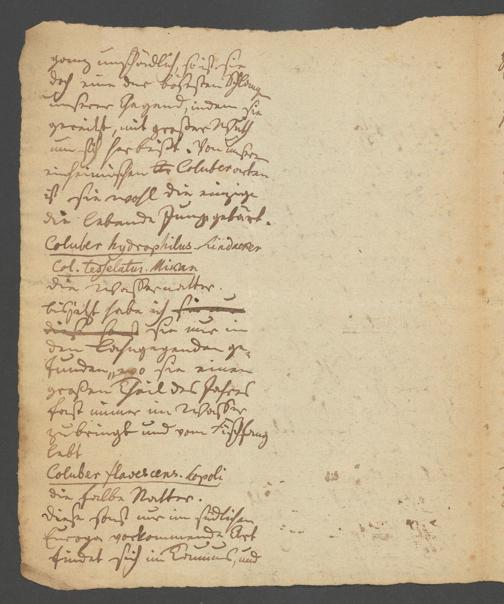 ganz unschädlich, so ist sie
doch eine der bösesten Schlangen
unserer Gegend, indem sie
gereitzt, mit großer Wuth
um sich herbeißt. Von unsern
einheimischen Coluberarten
ist sie wohl die einzige
die lebende Junge gebärt.
Coluber hydrophilus Lindacker
Col. tesselatus. Mikan
die Wassernatter.
bis jetzt habe ich
sie nur in
den Lahngegenden ge-
funden, wo sie einen
großen Theil des Jahres
fast immer im Wasser
zubringt und vom Fischfang
lebt
Coluber flavescens. Scopoli
die falbe Natter.
Diese sonst nur im südlichen
Europa vorkommende Art
findet sich im Taunus, und